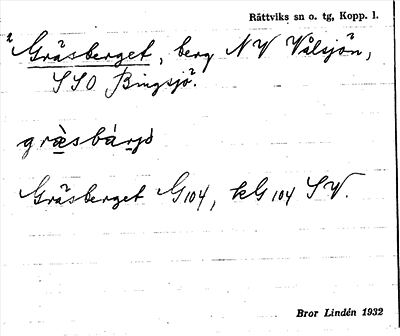 Rättviks sn o. tg, Kopp. l.
2 Gräsberget, berg NV Vålsjön,
SSO Bingsjö.
græ̀sbárjò
Gräsberget G104, kG104 SV.
Bror Lindén 1932